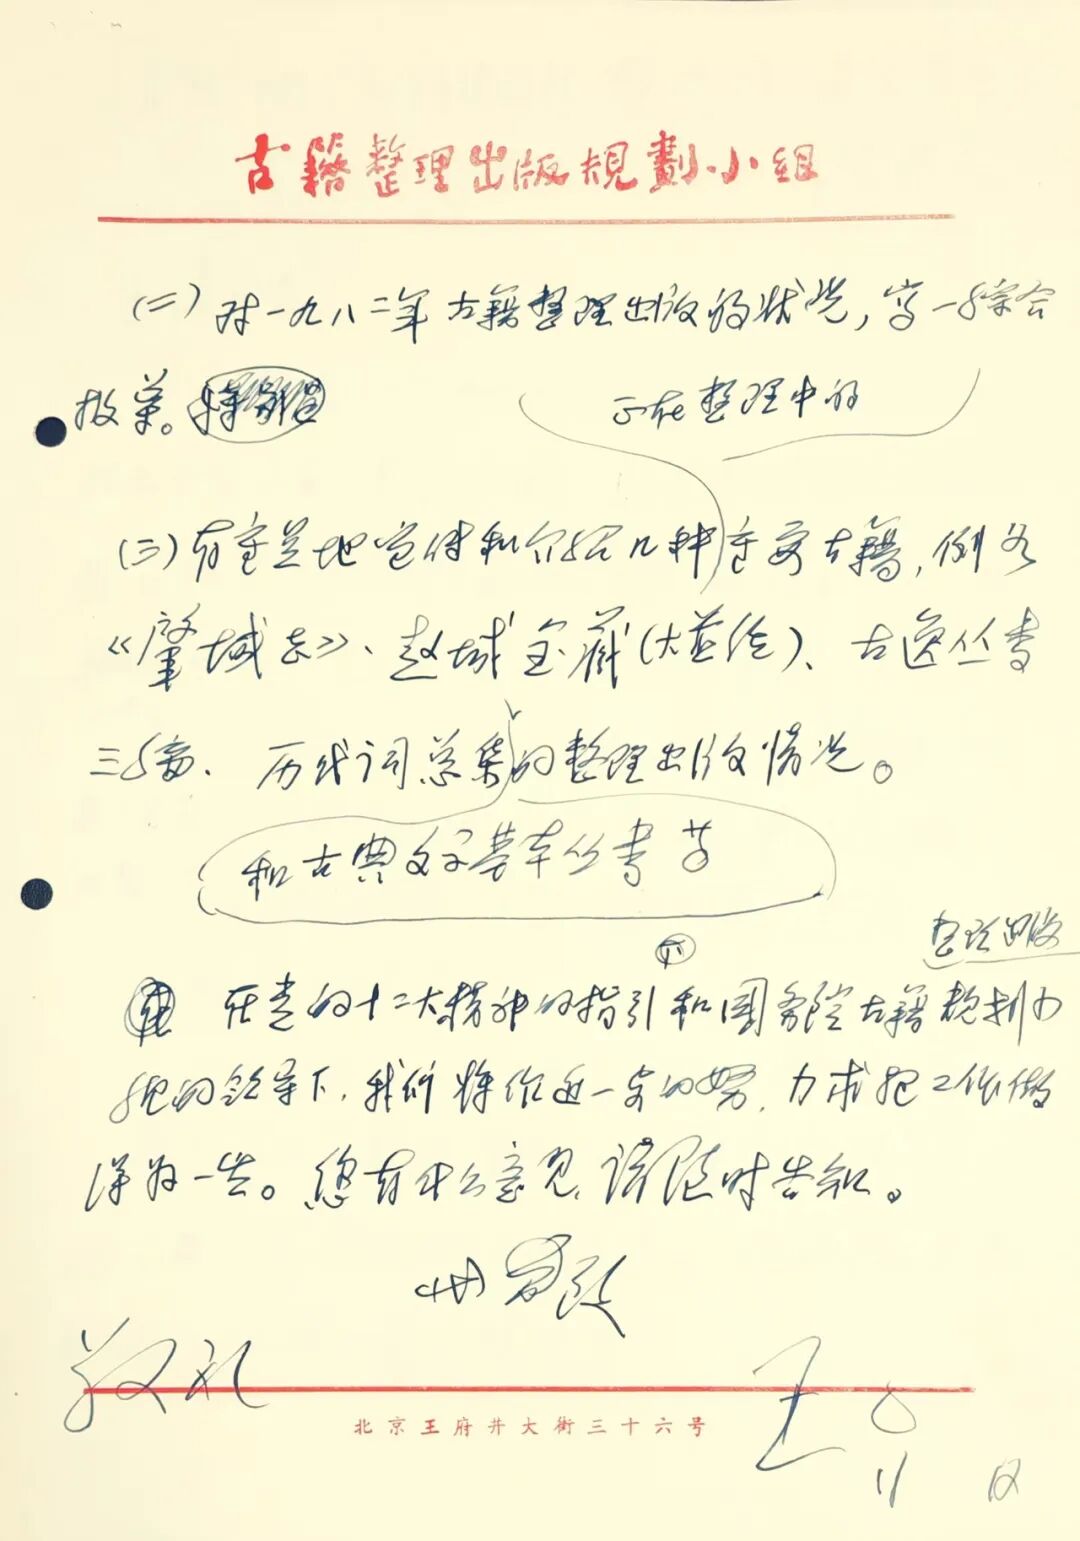 古籍整理出版規劃小組
(二)对一九八二年古籍整理出版的状况,写一综合
报导。
正在整理中的
(三)有重点地宣传和介绍几种重要古籍,例如
《肇域志》、赵城金藏(大藏经)、古逸丛书
三编、历代词总集的整理出版情况。
和古典文学基本丛书等
整理出版
在党的十二大精神的指引和国务院古籍规划小
组的领导下,我们将作进一步的努力,力求把工作做
得好一些。您有什么意见,请随时告知。
此致
敬礼
王
11 日
北京王府井大街三十六号